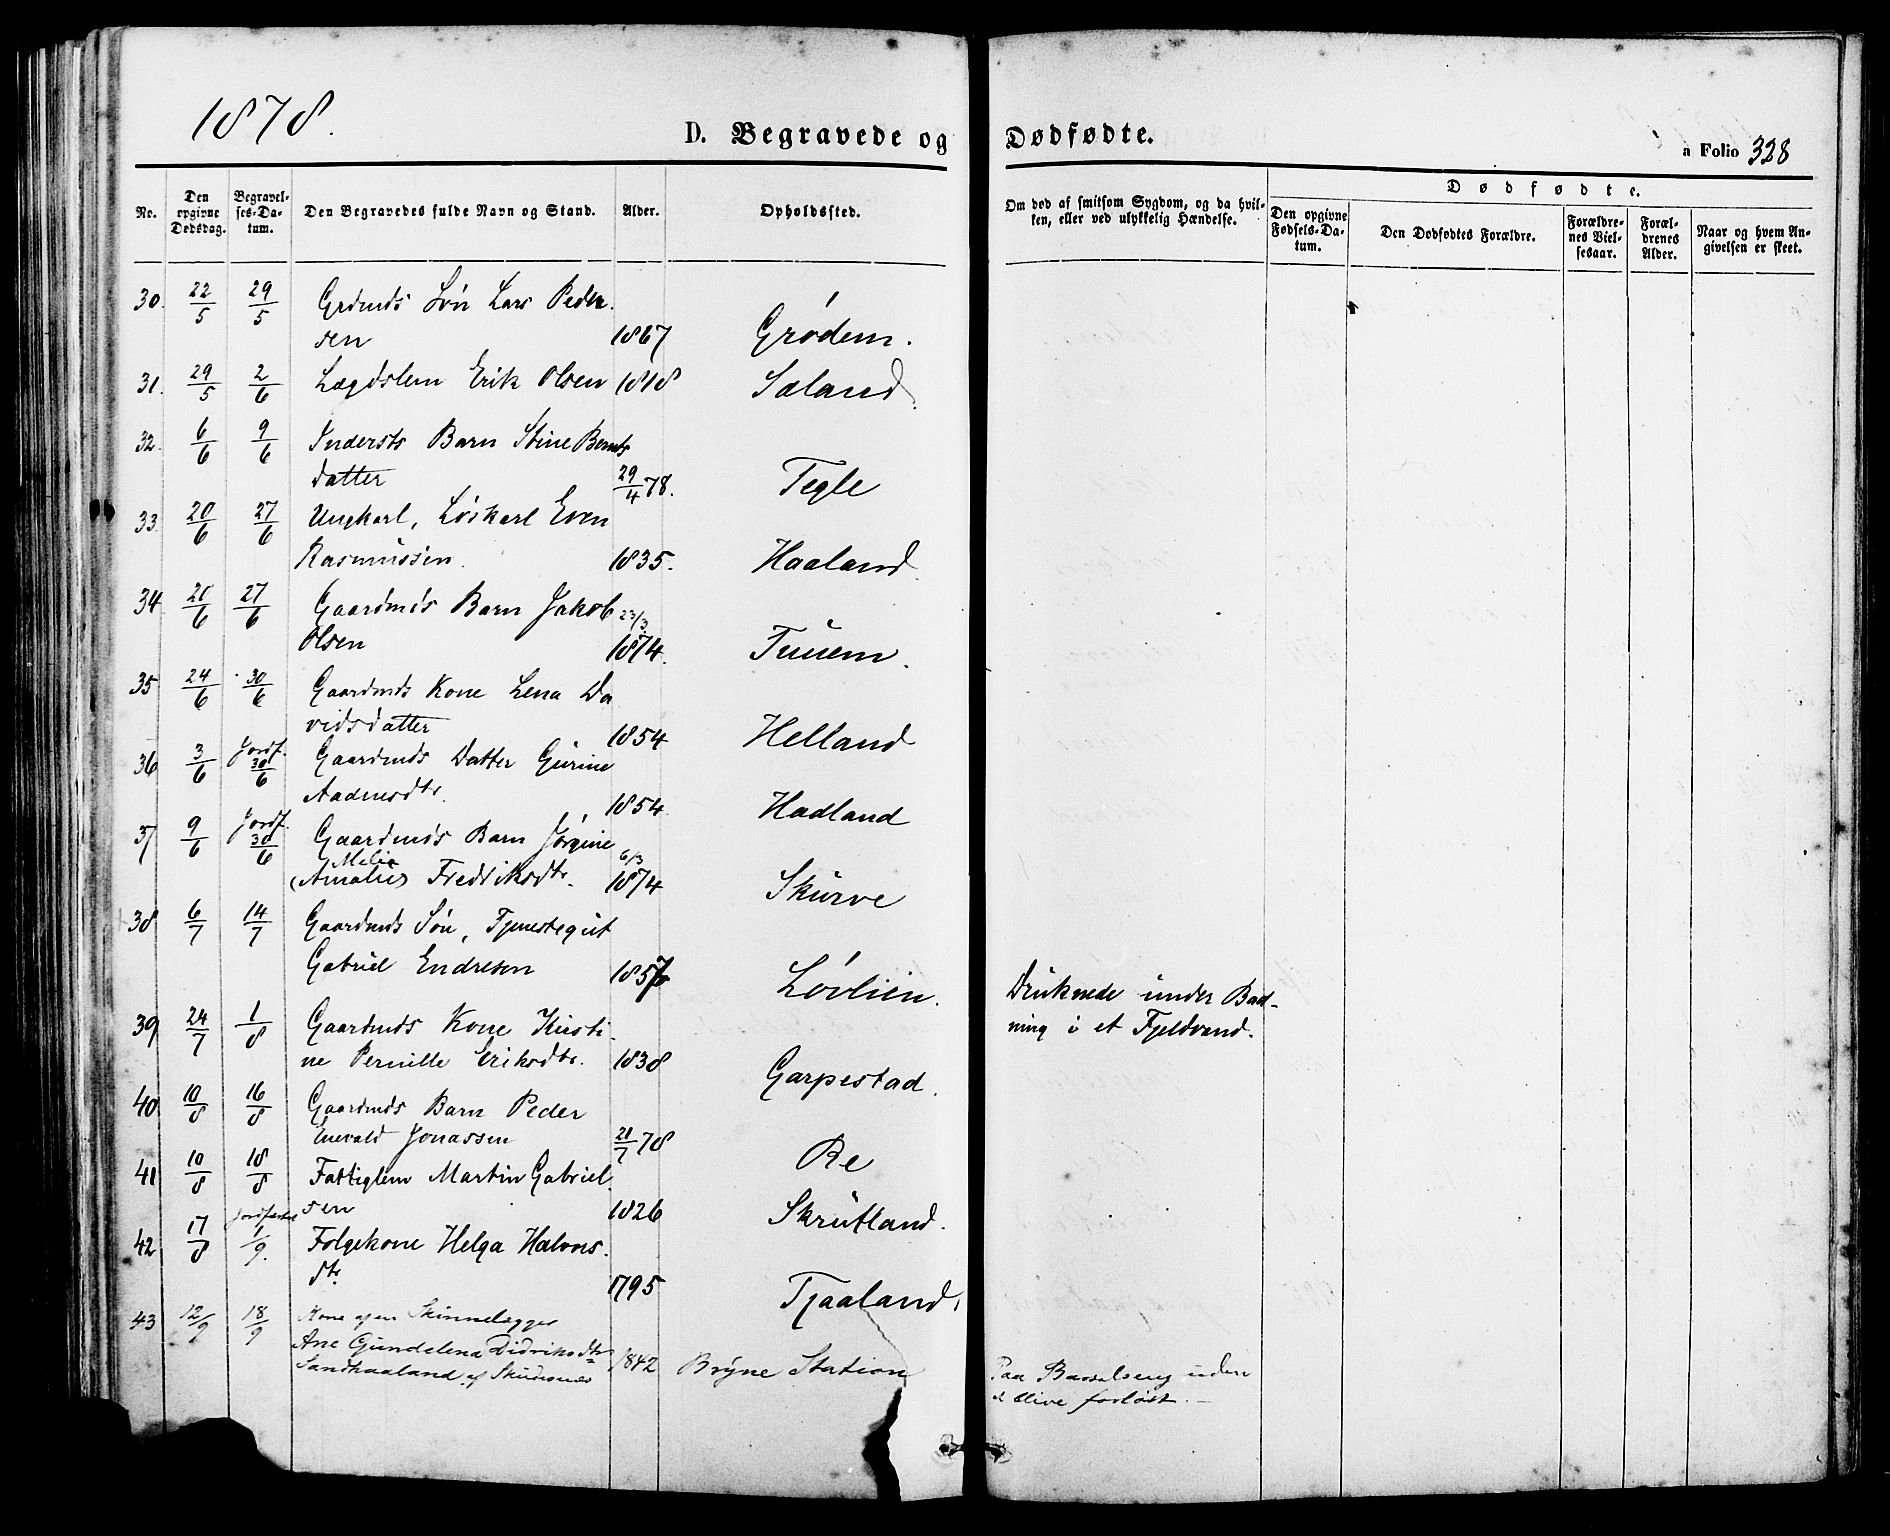 1878.
D. Begravede og Dødfødte.
a Folio 328
No.
Den opgivne Dødsdag.
Begravelses-Datum.
Den Begravedes fulde Navn og Stand.
Alder.
Opholdssted.
Om død af smitsom Sygdom, og da hvilken, eller ved ulykkelig Hændelse.
Dødfødte.
Den opgivne Fødsels-Datum.
Den Dødfødtes Forældre.
Forældrenes Vielsesaar.
Forældrenes Alder.
Naar og hvem Angivelsen er skeet.
30. 22/5 29/5 Grdmds Søn Lars Peder-
sen 1867 Grødem.
31. 29/5 2/6 Lægdslem Erik Olsen 1818 Sæland.
32. 6/6 9/6 Indersts Barn Stine Bernts
datter 29/4 78. Tegle
33. 20/6 27/6 Ungkarl, Løskarl Even
Rasmussen. 1835. Haaland.
34 21/6 27/6 Gaardmds Barn Jakob 23/3
Olsen 1874. Tuuem.
35 24/6 30/6 Gaardmds Kone Lena Da
vidsdatter 1854 Helland
36 3/6 Jordf. 30/6 Gaardmds Datter Gurine
Aadnesdtr. 1854 Hadland
37 9/6 Jordf. 30/6 Gaardmds Barn Jørgine 6/3
Melia
(Amalie) Fredriksdtr. 1874 Skurve
38 6/7 14/7 Gaardmds Søn, Tjenestegut
Gabriel Endresen 1857 Løvlien. Druknede under Bad-
ning i et Fjeldvand.
39 24/7 1/8 Gaardmds Kone Kristi-
ne Pernille Eriksdtr. 1838 Garpestad.
40 10/8 16/8 Gaardmds Barn Peder
Enevald Jonassen 21/7 78 Re
41 10/8 18/8 Fattiglem Martin Gabriel
sen 1826 Skrutland.
42 17/8 Jordfæstet 1/9. Folgekone Helga Halvors-
dtr 1795 Tjaaland,
43 12/9 18/9 Kone af en Skinnelægger
Ane Gundelena Didriksdtr
Sandhaaland af Skudesnæs 1842 Bryne Station Paa Barselseng uden
at blive forløst. -